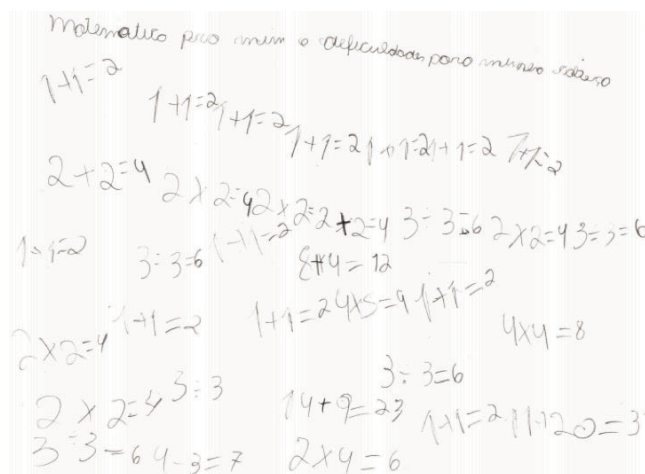 Matematica pra mim e deficuldades para minha cabesa
1+1=2
1+1=2 1+1=2 1+1=2 1+1=2 1+1=2 7+7=2
2+2=4 2×2=4 2×2=2+2=4 3÷3=6 2×2=4 3÷3=6
1+1=2 3÷3=6 1+1=2 8+4=12
2×2=4 1+1=2 1+1=2 4×5=9 1+1=2 4×4=8
3÷3=6
2×2=4 3÷3 14+9=23 1+1=2 11+20=3
3÷3=6 4-3=7 2×4=6